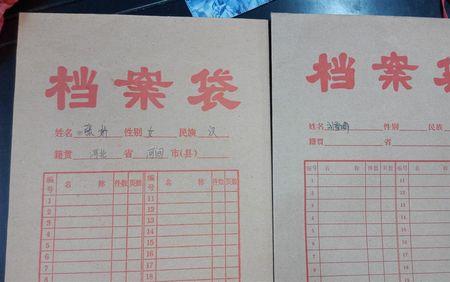 档案袋
姓名 张 性别 女 民族 汉
籍贯 河北 省 市(县)
编号 名 称 件数 页数 编号 名 称 件数 页数
1 11
2 12
3 13
4 14
5 15
6 16
7 17
8 18
档案袋
姓名 性别 民族
籍贯 省
编号 名 称 件数 页数 编号 名 称
1 11
2 12
3 13
4 14
5 15
6 16
7 17
8 18
9 19